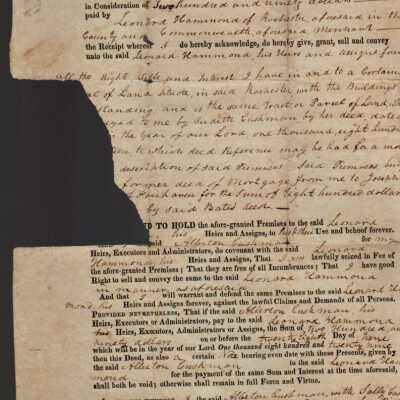 in Consideration of Two hundred and ninety dollars
paid by
Leonard Hammond of Rochester aforesaid in the
County and Commonwealth aforesaid Merchant
the Receipt whereof I do hereby acknowledge, do hereby give, grant, sell and convey
unto the said Leonard Hammond his Heirs and Assigns forever
all the Right Title and Interest I have in and to a Certain
of Land situate in said Rochester with the Buildings
standing and is the same Tract or Parcel of Land
me by Judith Cushman by her deed dated
the year of our Lord one thousand eight hundred
to which deed Reference may be had for a more
description of said Premises Said Premises
former deed of Mortgage from me to Joseph
of Fairhaven for the Sum of Eight hundred dollars
by said Bates deed
TO HOLD the afore-granted Premises to the said Leonard
his Heirs and Assigns, to Use and behoof forever.
said Allerton Cushman for my
Heirs, Executors and Administrators, do covenant with the said Leonard
Hammond his Heirs and Assigns, That I am lawfully seized in Fee of
the afore-granted Premises; That they are free of all Incumbrances; That I have good
Right to sell and convey the same to the said Leonard Hammond
in manner as aforesaid
And that I will warrant and defend the same Premises to the said Leonard
mond, his Heirs and Assigns forever, against the lawful Claims and Demands of all Persons.
PROVIDED NEVERTHELESS, That if the said Allerton Cushman, his
Heirs, Executors or Administrators, pay to the said Leonard Hammond
his Heirs, Executors, Administrators or Assigns, the Sum of Two Hundred and
ninety dollars on or before the twenty Eighth Day of June
which will be in the year of our Lord One thousand eight hundred and twenty nine
then this Deed, as also a certain Note bearing even date with these Presents, given by
the said Allerton Cushman to the said Leonard Ham
mond for the payment of the same Sum and Interest at the time aforesaid,
shall both be void; otherwise shall remain in full Form and Virtue.
the said Allerton Cushman, with Sally